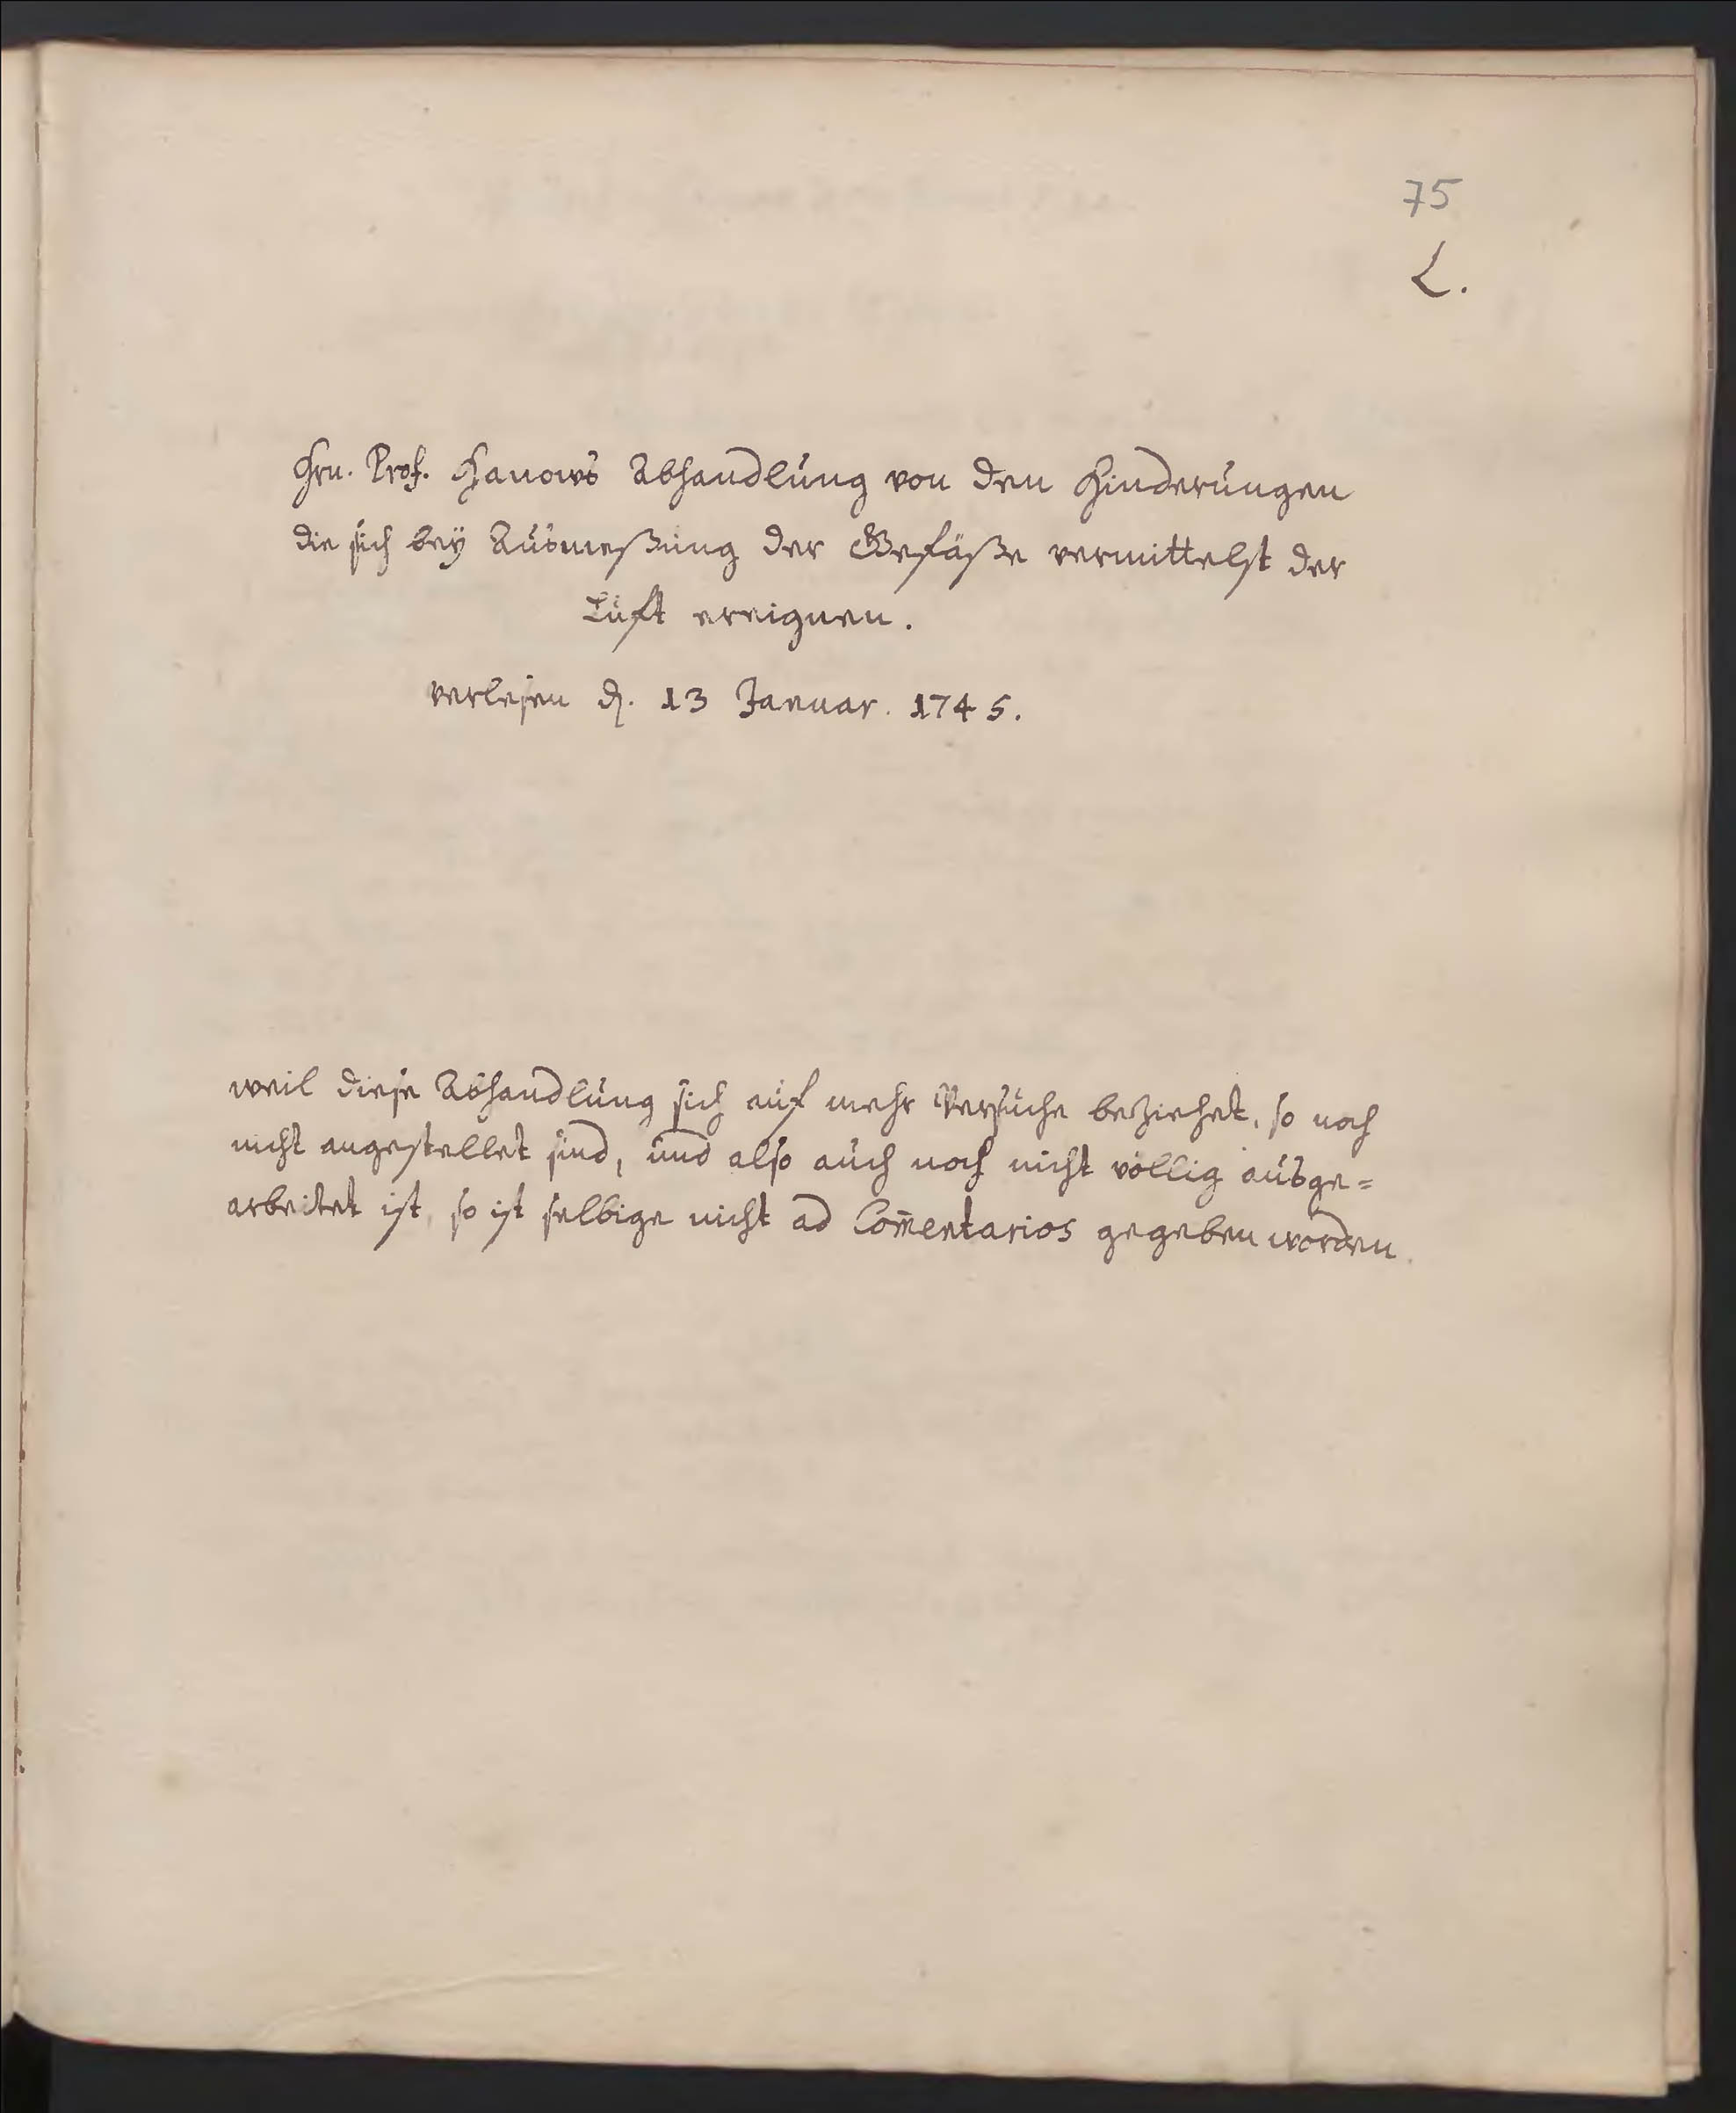 75
L.
Hrn. Prof. Hanows Abhandlung von den Hinderungen
die sich beÿ Ausmeßung der Gefäße vermittelst der
Luft ereignen.
verlesen d. 13 Januar. 1745.
weil diese Abhandlung sich auf mehr Versuche beziehet, so noch
nicht angestellet sind, und also auch noch nicht völlig ausge=
arbeitet ist, so ist selbige nicht ad Com̅entarios gegeben worden.